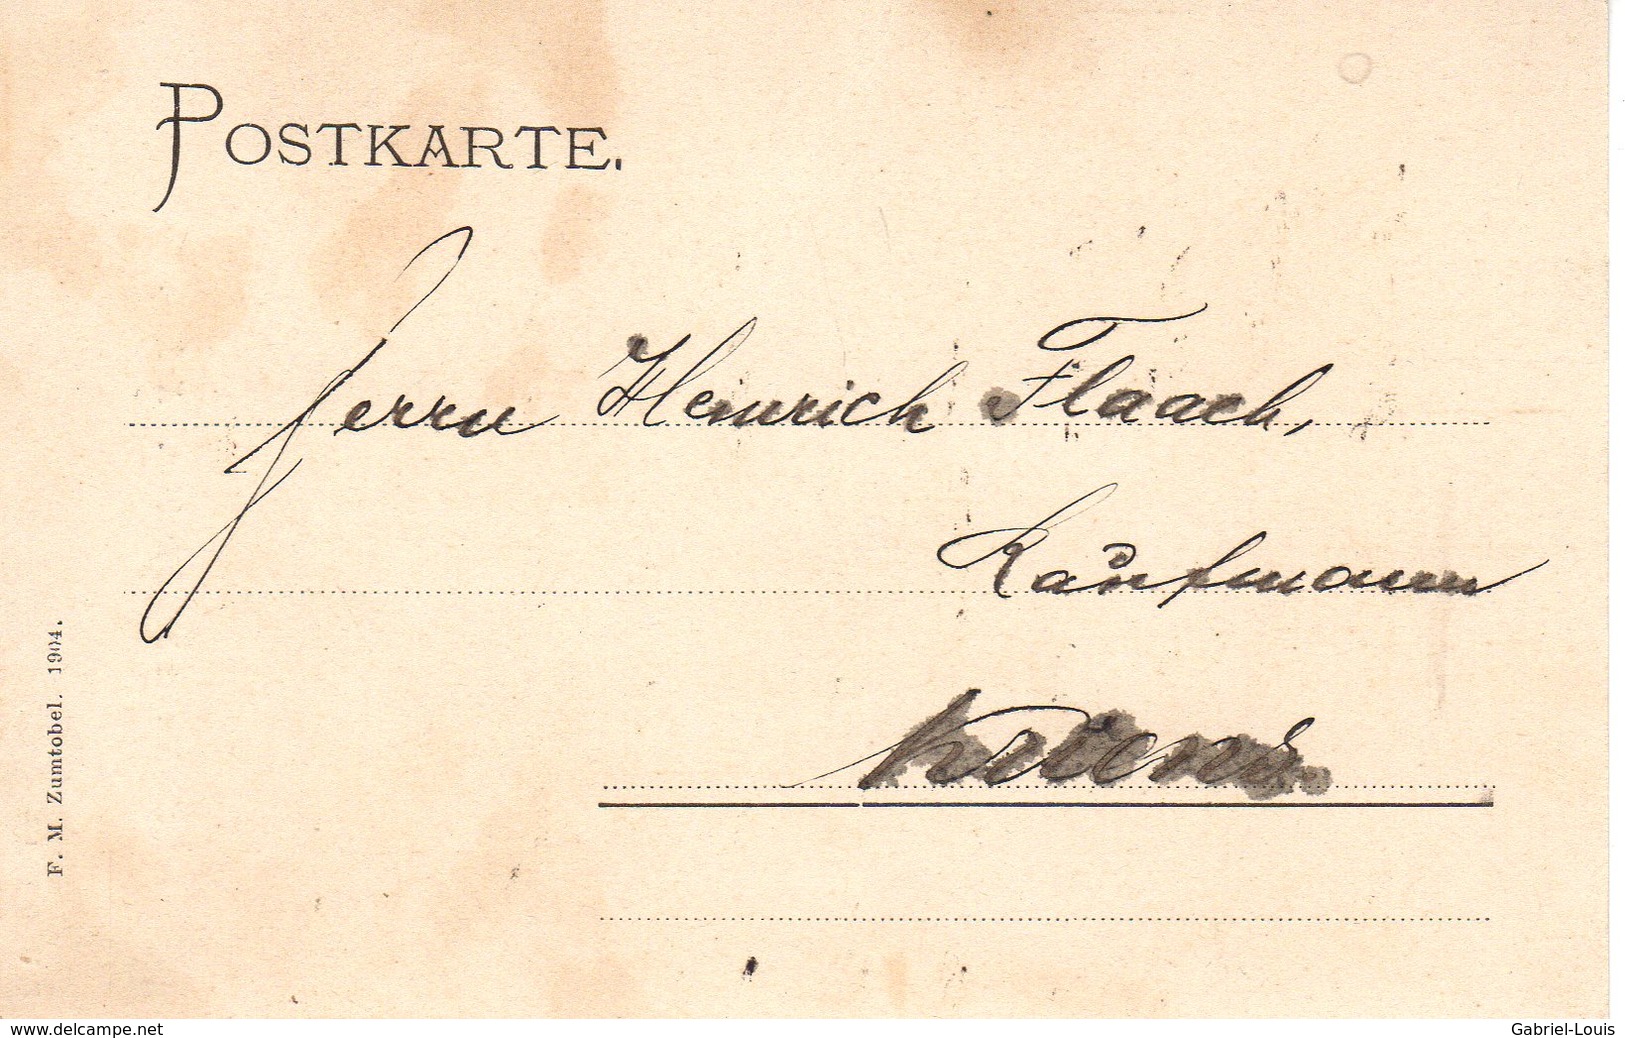 POSTKARTE.
Herrn Heinrich Flaach,
Kaufmann
Kriens.
F. M. Zumtobel. 1904.
www.delcampe.net
Gabriel-Louis